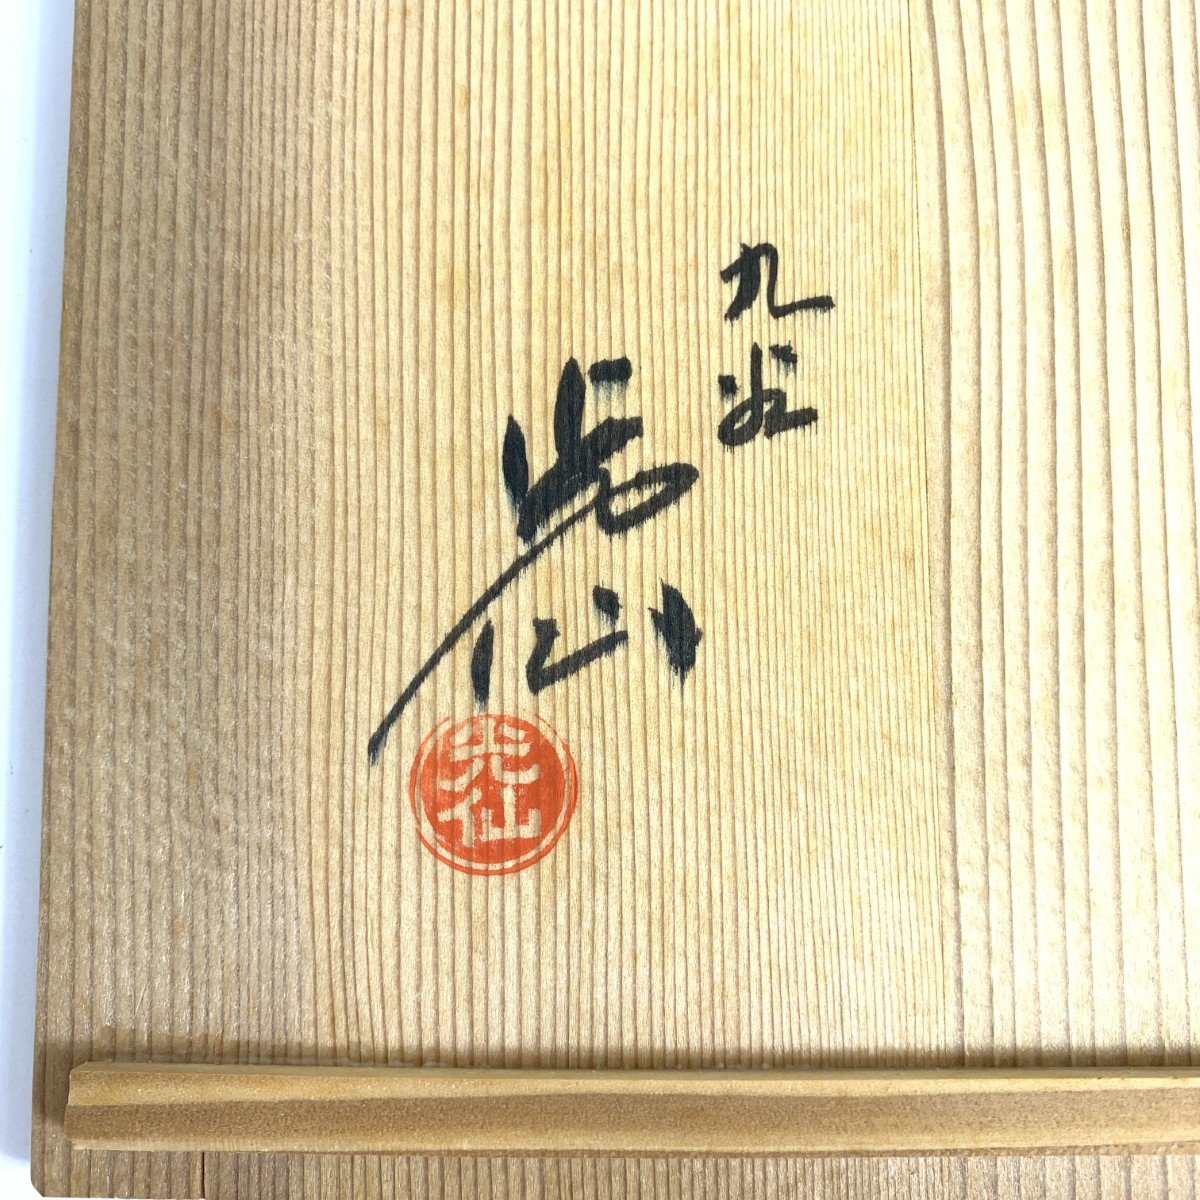 九谷
光仙
光仙